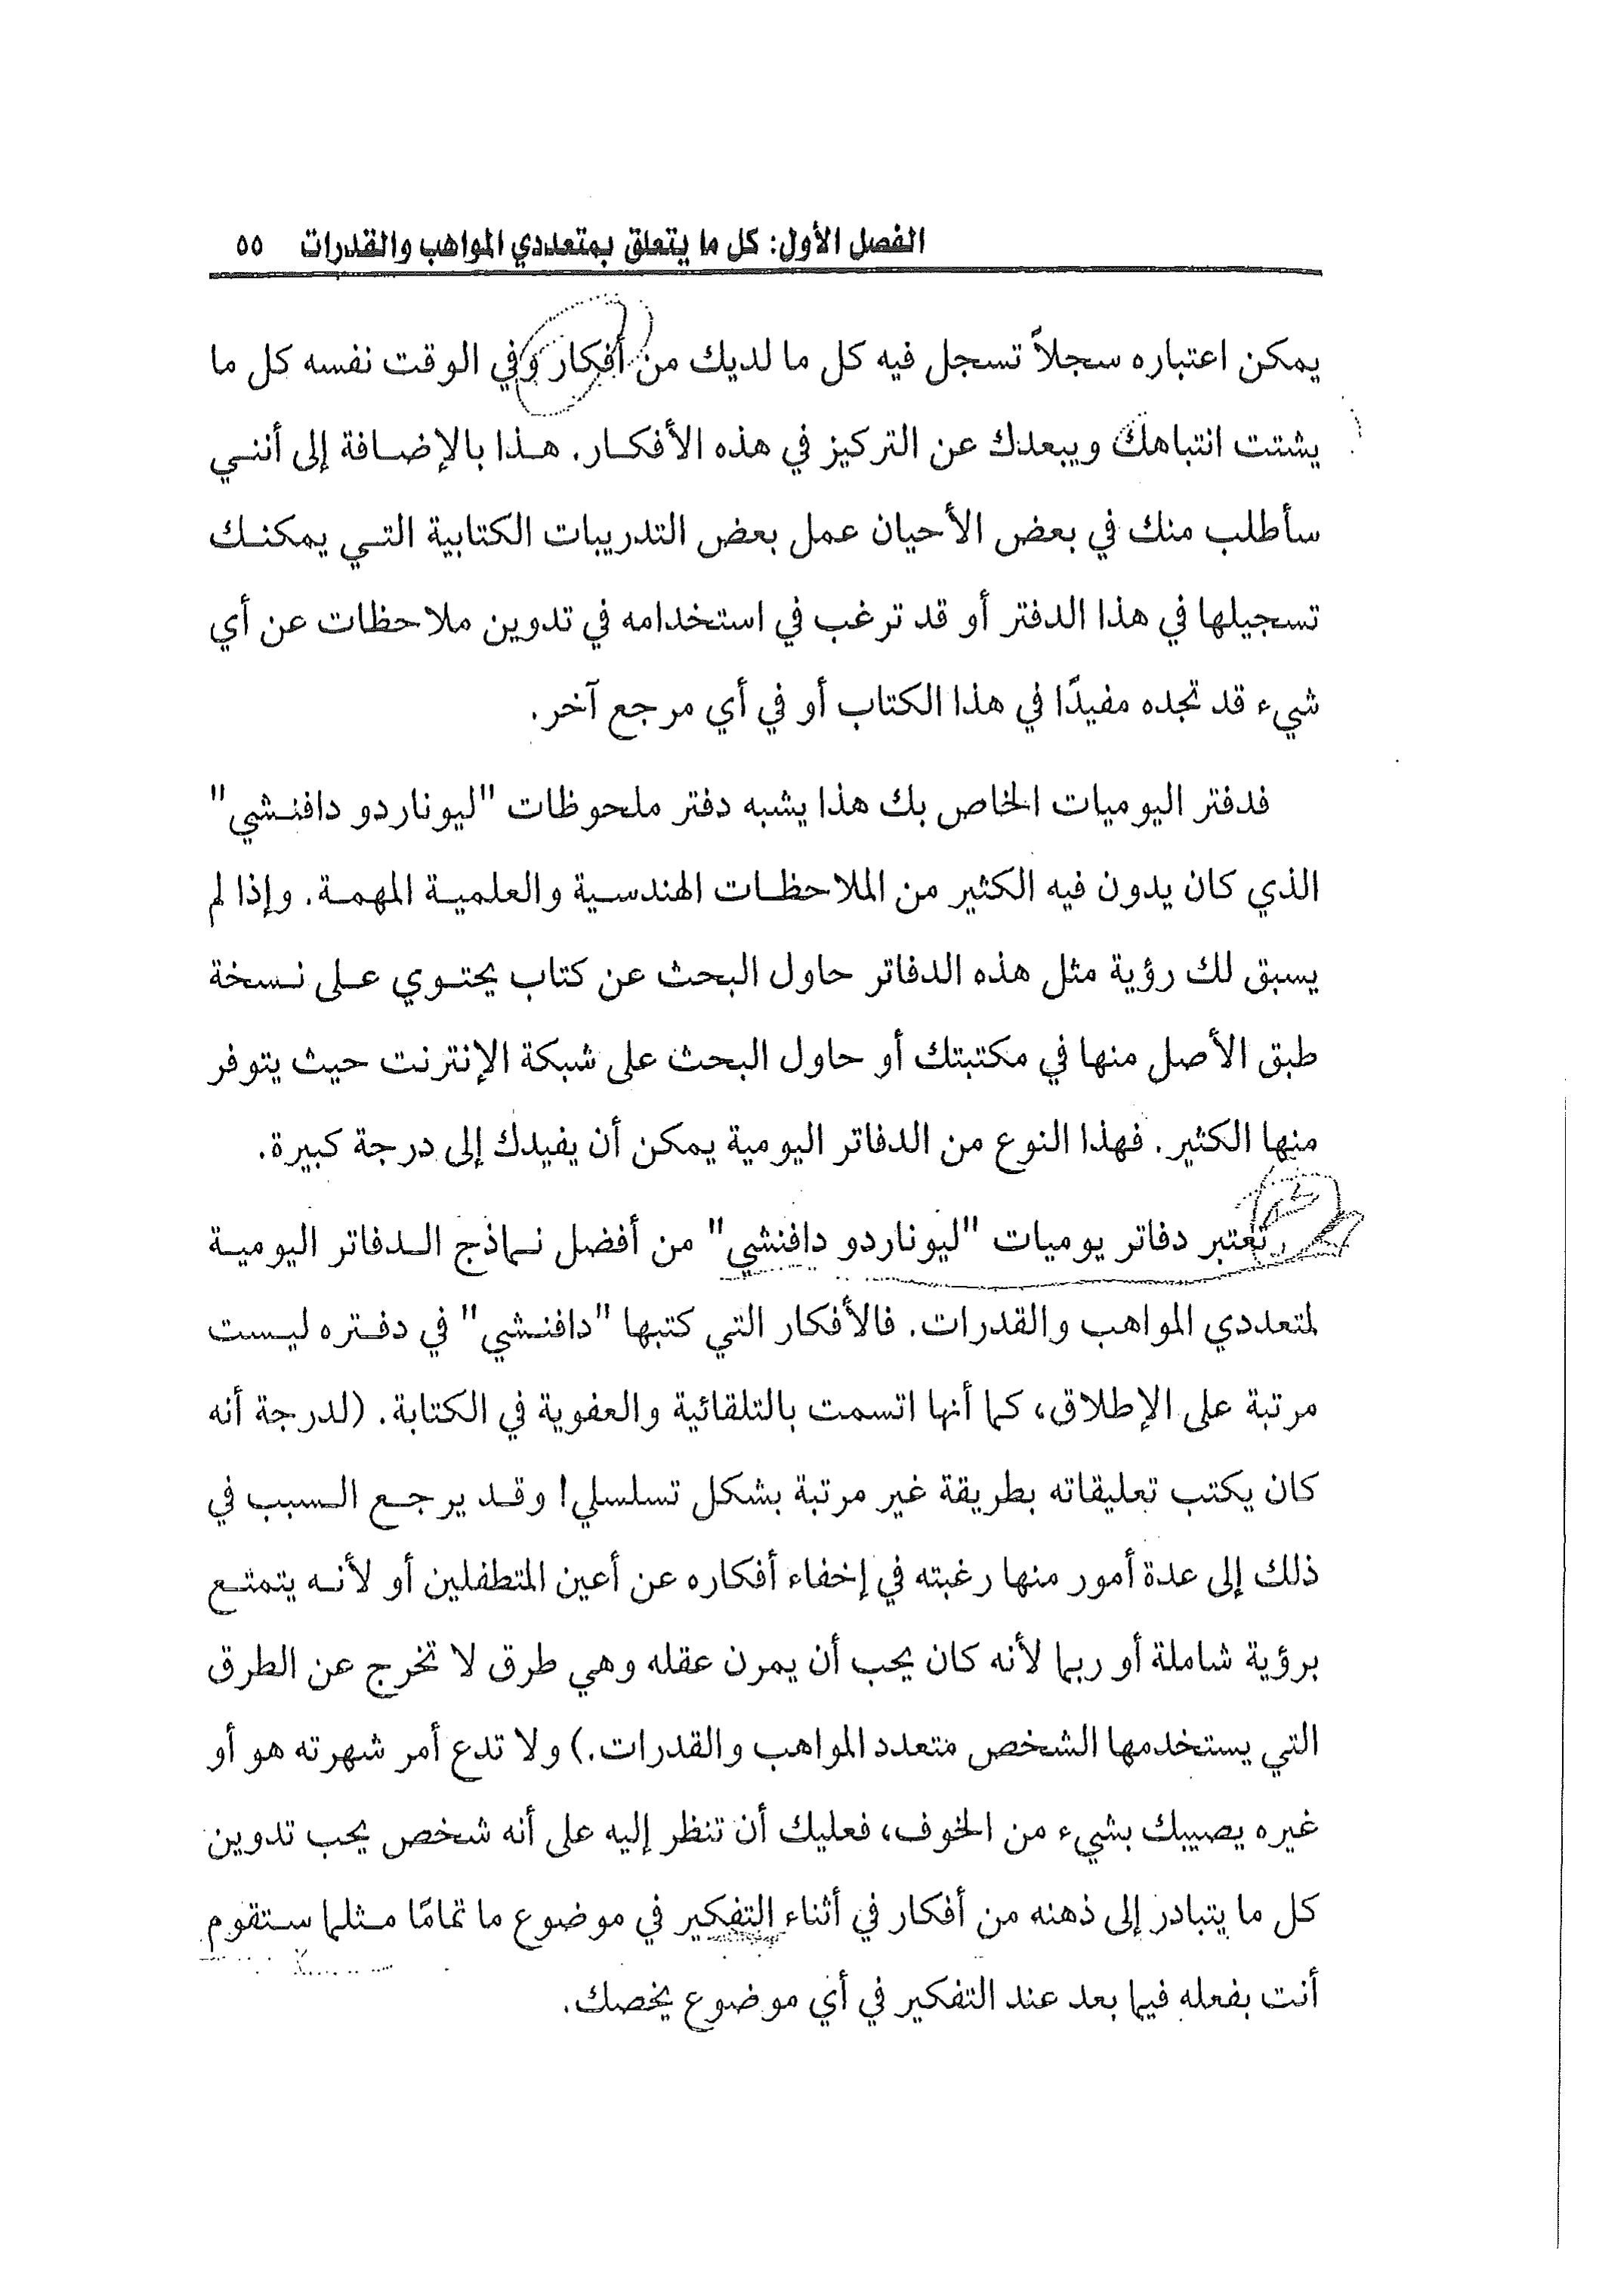 الفصل الأول: كل ما يتعلق بمتعددي المواهب والقدرات ٥٥
يمكن اعتباره سجلاً تسجل فيه كل ما لديك من أفكار وفي الوقت نفسه كل ما
يشتت انتباهك ويبعدك عن التركيز في هذه الأفكار. هذا بالإضافة إلى أنني
سأطلب منك في بعض الأحيان عمل بعض التدريبات الكتابية التي يمكنك
تسجيلها في هذا الدفتر أو قد ترغب في استخدامه في تدوين ملاحظات عن أي
شيء قد تجده مفيدًا في هذا الكتاب أو في أي مرجع آخر.
فدفتر اليوميات الخاص بك هذا يشبه دفتر ملحوظات "ليوناردو دافنشي"
الذي كان يدون فيه الكثير من الملاحظات الهندسية والعلمية المهمة. وإذا لم
يسبق لك رؤية مثل هذه الدفاتر حاول البحث عن كتاب يحتوي على نسخة
طبق الأصل منها في مكتبتك أو حاول البحث على شبكة الإنترنت حيث يتوفر
منها الكثير. فهذا النوع من الدفاتر اليومية يمكن أن يفيدك إلى درجة كبيرة.
تعتبر دفاتر يوميات "ليوناردو دافنشي" من أفضل نماذج الدفاتر اليومية
لمتعددي المواهب والقدرات. فالأفكار التي كتبها "دافنشي" في دفتره ليست
مرتبة على الإطلاق، كما أنها اتسمت بالتلقائية والعفوية في الكتابة. (لدرجة أنه
كان يكتب تعليقاته بطريقة غير مرتبة بشكل تسلسلي! وقد يرجع السبب في
ذلك إلى عدة أمور منها رغبته في إخفاء أفكاره عن أعين المتطفلين أو لأنه يتمتع
برؤية شاملة أو ربما لأنه كان يحب أن يمرن عقله وهي طرق لا تخرج عن الطرق
التي يستخدمها الشخص متعدد المواهب والقدرات.) ولا تدع أمر شهرته هو أو
غيره يصيبك بشيء من الخوف، فعليك أن تنظر إليه على أنه شخص يحب تدوين
كل ما يتبادر إلى ذهنه من أفكار في أثناء التفكير في موضوع ما تمامًا مثلما ستقوم
أنت بفعله فيما بعد عند التفكير في أي موضوع يخصك.